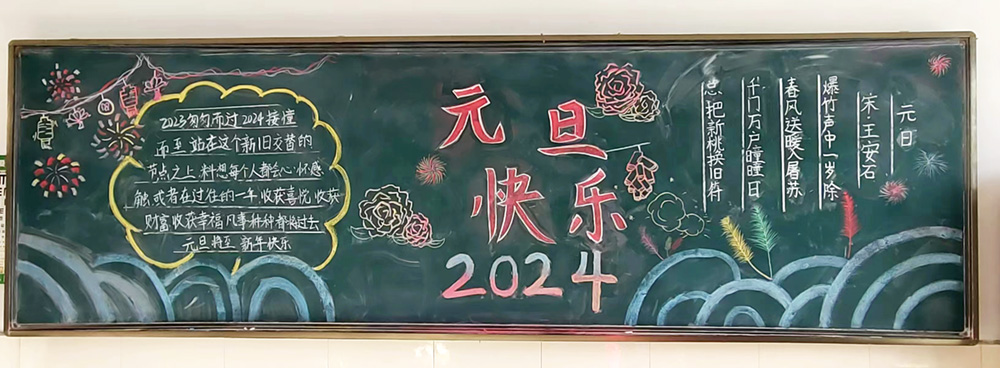 2023匆匆而过2024接憧
而至 站在这个新旧交替的
节点之上 料想每个人都会心怀感
触 或者在过往的一年收获喜悦 收获
财富 收获幸福 凡事种种都将过去
元旦将至 新年快乐
元旦
快乐
2024
元日
宋·王安石
爆竹声中一岁除
春风送暖入屠苏
千门万户瞳瞳日
总把新桃换旧符